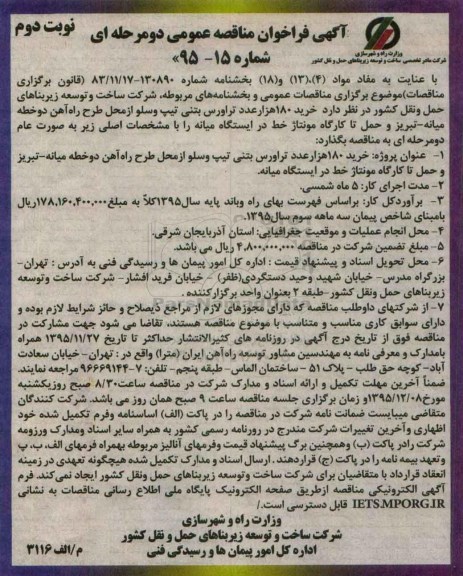 نوبت دوم
آگهی فراخوان مناقصه عمومی دومرحله ای
شماره ۱۵- ۹۵»
وزارت راه و شهرسازی
شرکت مادر تخصصی ساخت و توسعه زیربناهای حمل و نقل کشور
با عنایت به مفاد مواد (۴)،(۱۳) و(۱۸) بخشنامه شماره ۱۳۰۸۹۰-۸۳/۱۱/۱۷ (قانون برگزاری
مناقصات)موضوع برگزاری مناقصات عمومی و بخشنامه‌های مربوطه، شرکت ساخت و توسعه زیربناهای
حمل ونقل کشور در نظر دارد خرید ۱۸۰هزارعدد تراورس بتنی تیپ وسلو ازمحل طرح راه‌آهن دوخطه
میانه-تبریز و حمل تا کارگاه مونتاژ خط در ایستگاه میانه را با مشخصات اصلی زیر به صورت عام
دومرحله ای به مناقصه بگذارد:
۱- عنوان پروژه: خرید ۱۸۰هزارعدد تراورس بتنی تیپ وسلو ازمحل طرح راه‌آهن دوخطه میانه-تبریز
و حمل تا کارگاه مونتاژ خط در ایستگاه میانه.
۲- مدت اجرای کار: ۵ ماه شمسی.
۳- برآوردکل کار: براساس فهرست بهای راه وباند پایه سال۱۳۹۵کلاً به مبلغ۱۷۸,۱۶۰,۴۰۰,۰۰۰ریال
بامبنای شاخص پیمان سه ماهه سوم سال۱۳۹۵.
۴- محل انجام عملیات و موقعیت جغرافیایی: استان آذربایجان شرقی.
۵- مبلغ تضمین شرکت در مناقصه ۴,۸۰۰,۰۰۰,۰۰۰ ریال می باشد.
۶- محل تحویل اسناد و پیشنهاد قیمت : اداره کل امور پیمان ها و رسیدگی فنی به آدرس : تهران-
بزرگراه مدرس- خیابان شهید وحید دستگردی(ظفر) - خیابان فرید افشار- شرکت ساخت وتوسعه
زیربناهای حمل ونقل کشور-طبقه ۲بعنوان واحد برگزارکننده.
۷- از شرکتهای داوطلب مناقصه که دارای مجوزهای لازم از مراجع ذیصلاح و حائز شرایط لازم بوده و
دارای سوابق کاری مناسب و متناسب با موضوع مناقصه هستند، تقاضا می شود جهت مشارکت در
مناقصه فوق از تاریخ درج آگهی در روزنامه های کثیرالانتشار حداکثر تا تاریخ ۱۳۹۵/۱۱/۲۷ همراه
بامدارک و معرفی نامه به مهندسین مشاور توسعه راه‌آهن ایران (مترا) واقع در : تهران-خیابان سعادت
آباد-کوچه حق طلب - پلاک ۵۱ -ساختمان الماس- طبقه پنجم- تلفن: ۷-۹۶۶۶۹۱۴۴ مراجعه نمایند.
ضمناً آخرین مهلت تکمیل و ارائه اسناد و مدارک شرکت در مناقصه ساعت۸/۳۰ صبح روزیکشنبه
مورخ۱۳۹۵/۱۲/۰۸و زمان برگزاری جلسه مناقصه ساعت ۹ صبح همان روز می باشد. شرکت کنندگان
متقاضی میبایست ضمانت نامه شرکت در مناقصه را در پاکت (الف) اساسنامه وفرم تکمیل شده خود
اظهاری وآخرین تغییرات شرکت مندرج در روزنامه رسمی کشور به همراه سایر اسناد ومدارک ورزومه
شرکت رادر پاکت (ب) وهمچنین برگ پیشنهاد قیمت وفرمهای آنالیز مربوطه بهمراه فرمهای الف، ب، پ
وتعهد بیمه نامه را در پاکت (ج) قراردهند . ارسال اسناد و مدارک تکمیل شده هیچگونه تعهدی در زمینه
انعقاد قرارداد با متقاضیان برای شرکت ساخت وتوسعه زیربناهای حمل ونقل کشور ایجاد نمی‌کند. فرم
آگهی الکترونیکی مناقصه ازطریق صفحه الکترونیک پایگاه ملی اطلاع رسانی مناقصات به نشانی
IETS.MPORG.IR قابل دسترسی است./
وزارت راه و شهرسازی
شرکت ساخت و توسعه زیربناهای حمل و نقل کشور
اداره کل امور پیمان ها و رسیدگی فنی
م/الف ۳۱۱۶